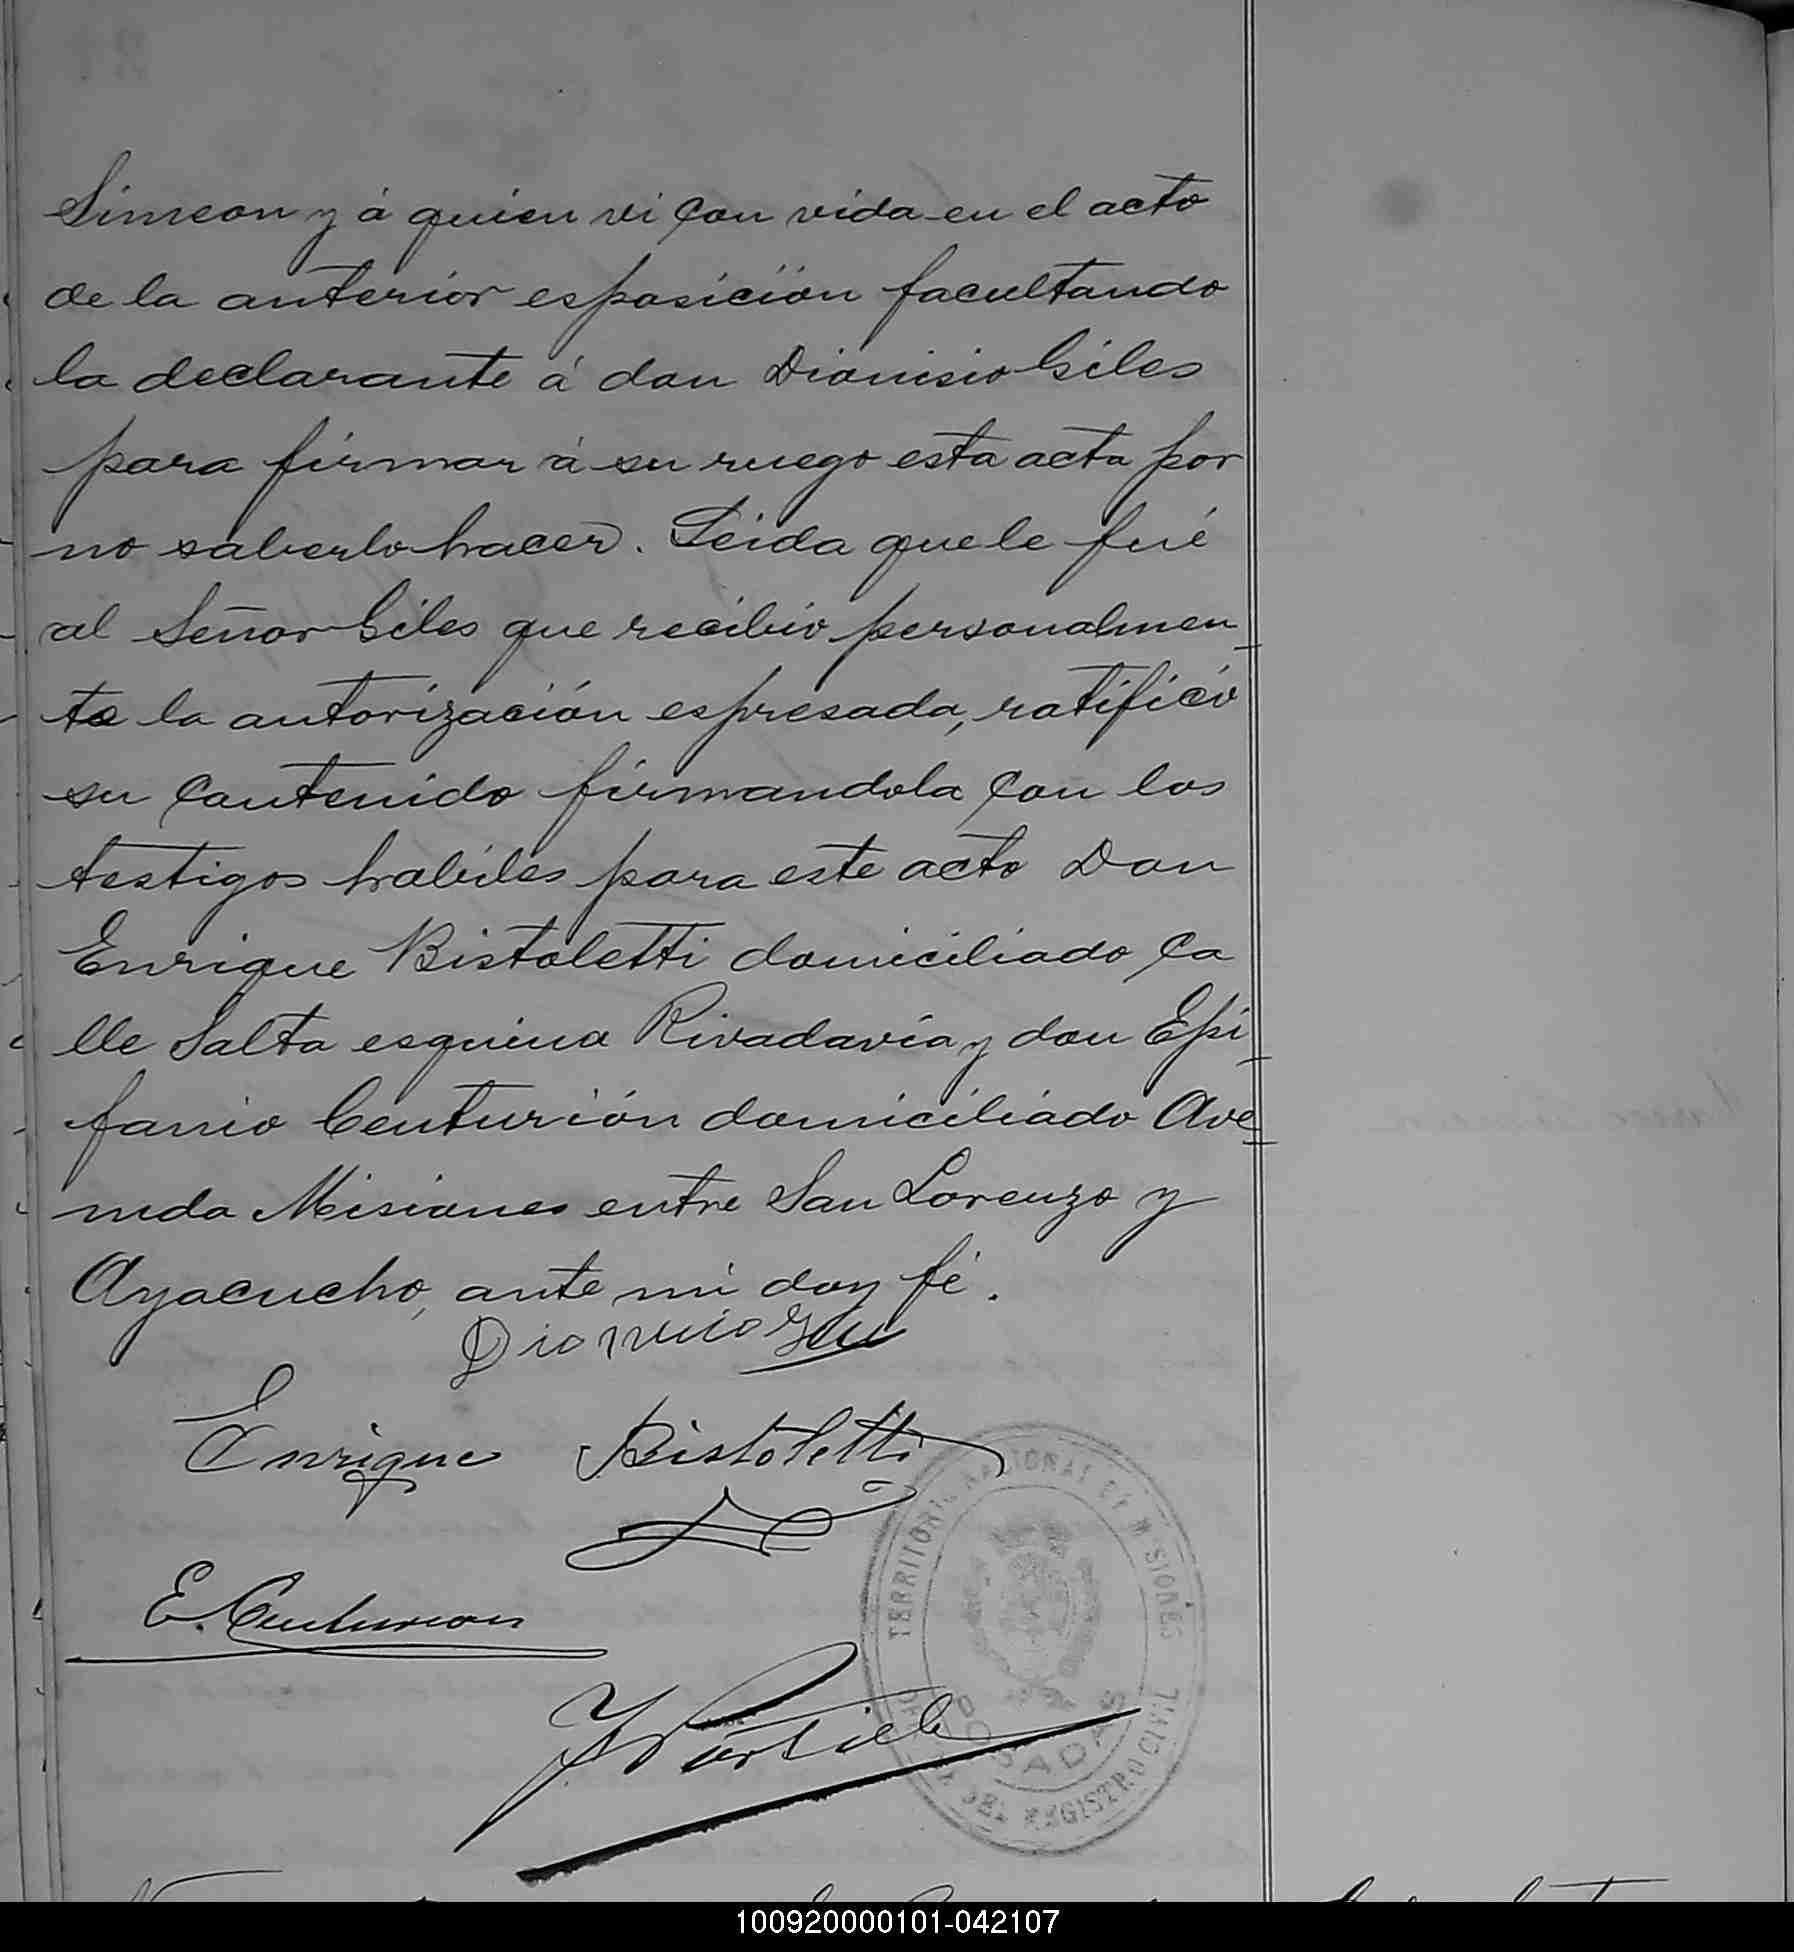 Simeon y á quien vi con vida en el acto
de la anterior esposición facultando
la declarante á don Dionisio Giles
para firmar á su ruego esta acta por
no saberlo hacer. Leida que le fué
al Señor Giles que recibió personalmen-
te la autorización espresada, ratificó
su contenido firmandola con los
testigos habiles para este acto Don
Enrique Bistoletti domiciliado ca
lle Salta esquina Rivadavia y don Epi-
fanio Centurión domiciliado Ave-
nida Misiones entre San Lorenzo y
Ayacucho, ante mi doy fé.
Dionicio
Enrique Bistoletti
E. Centurion
TERRITORIO NACIONAL DE MISIONES
POSADAS
DEL REGISTRO CIVIL
100920000101-042107